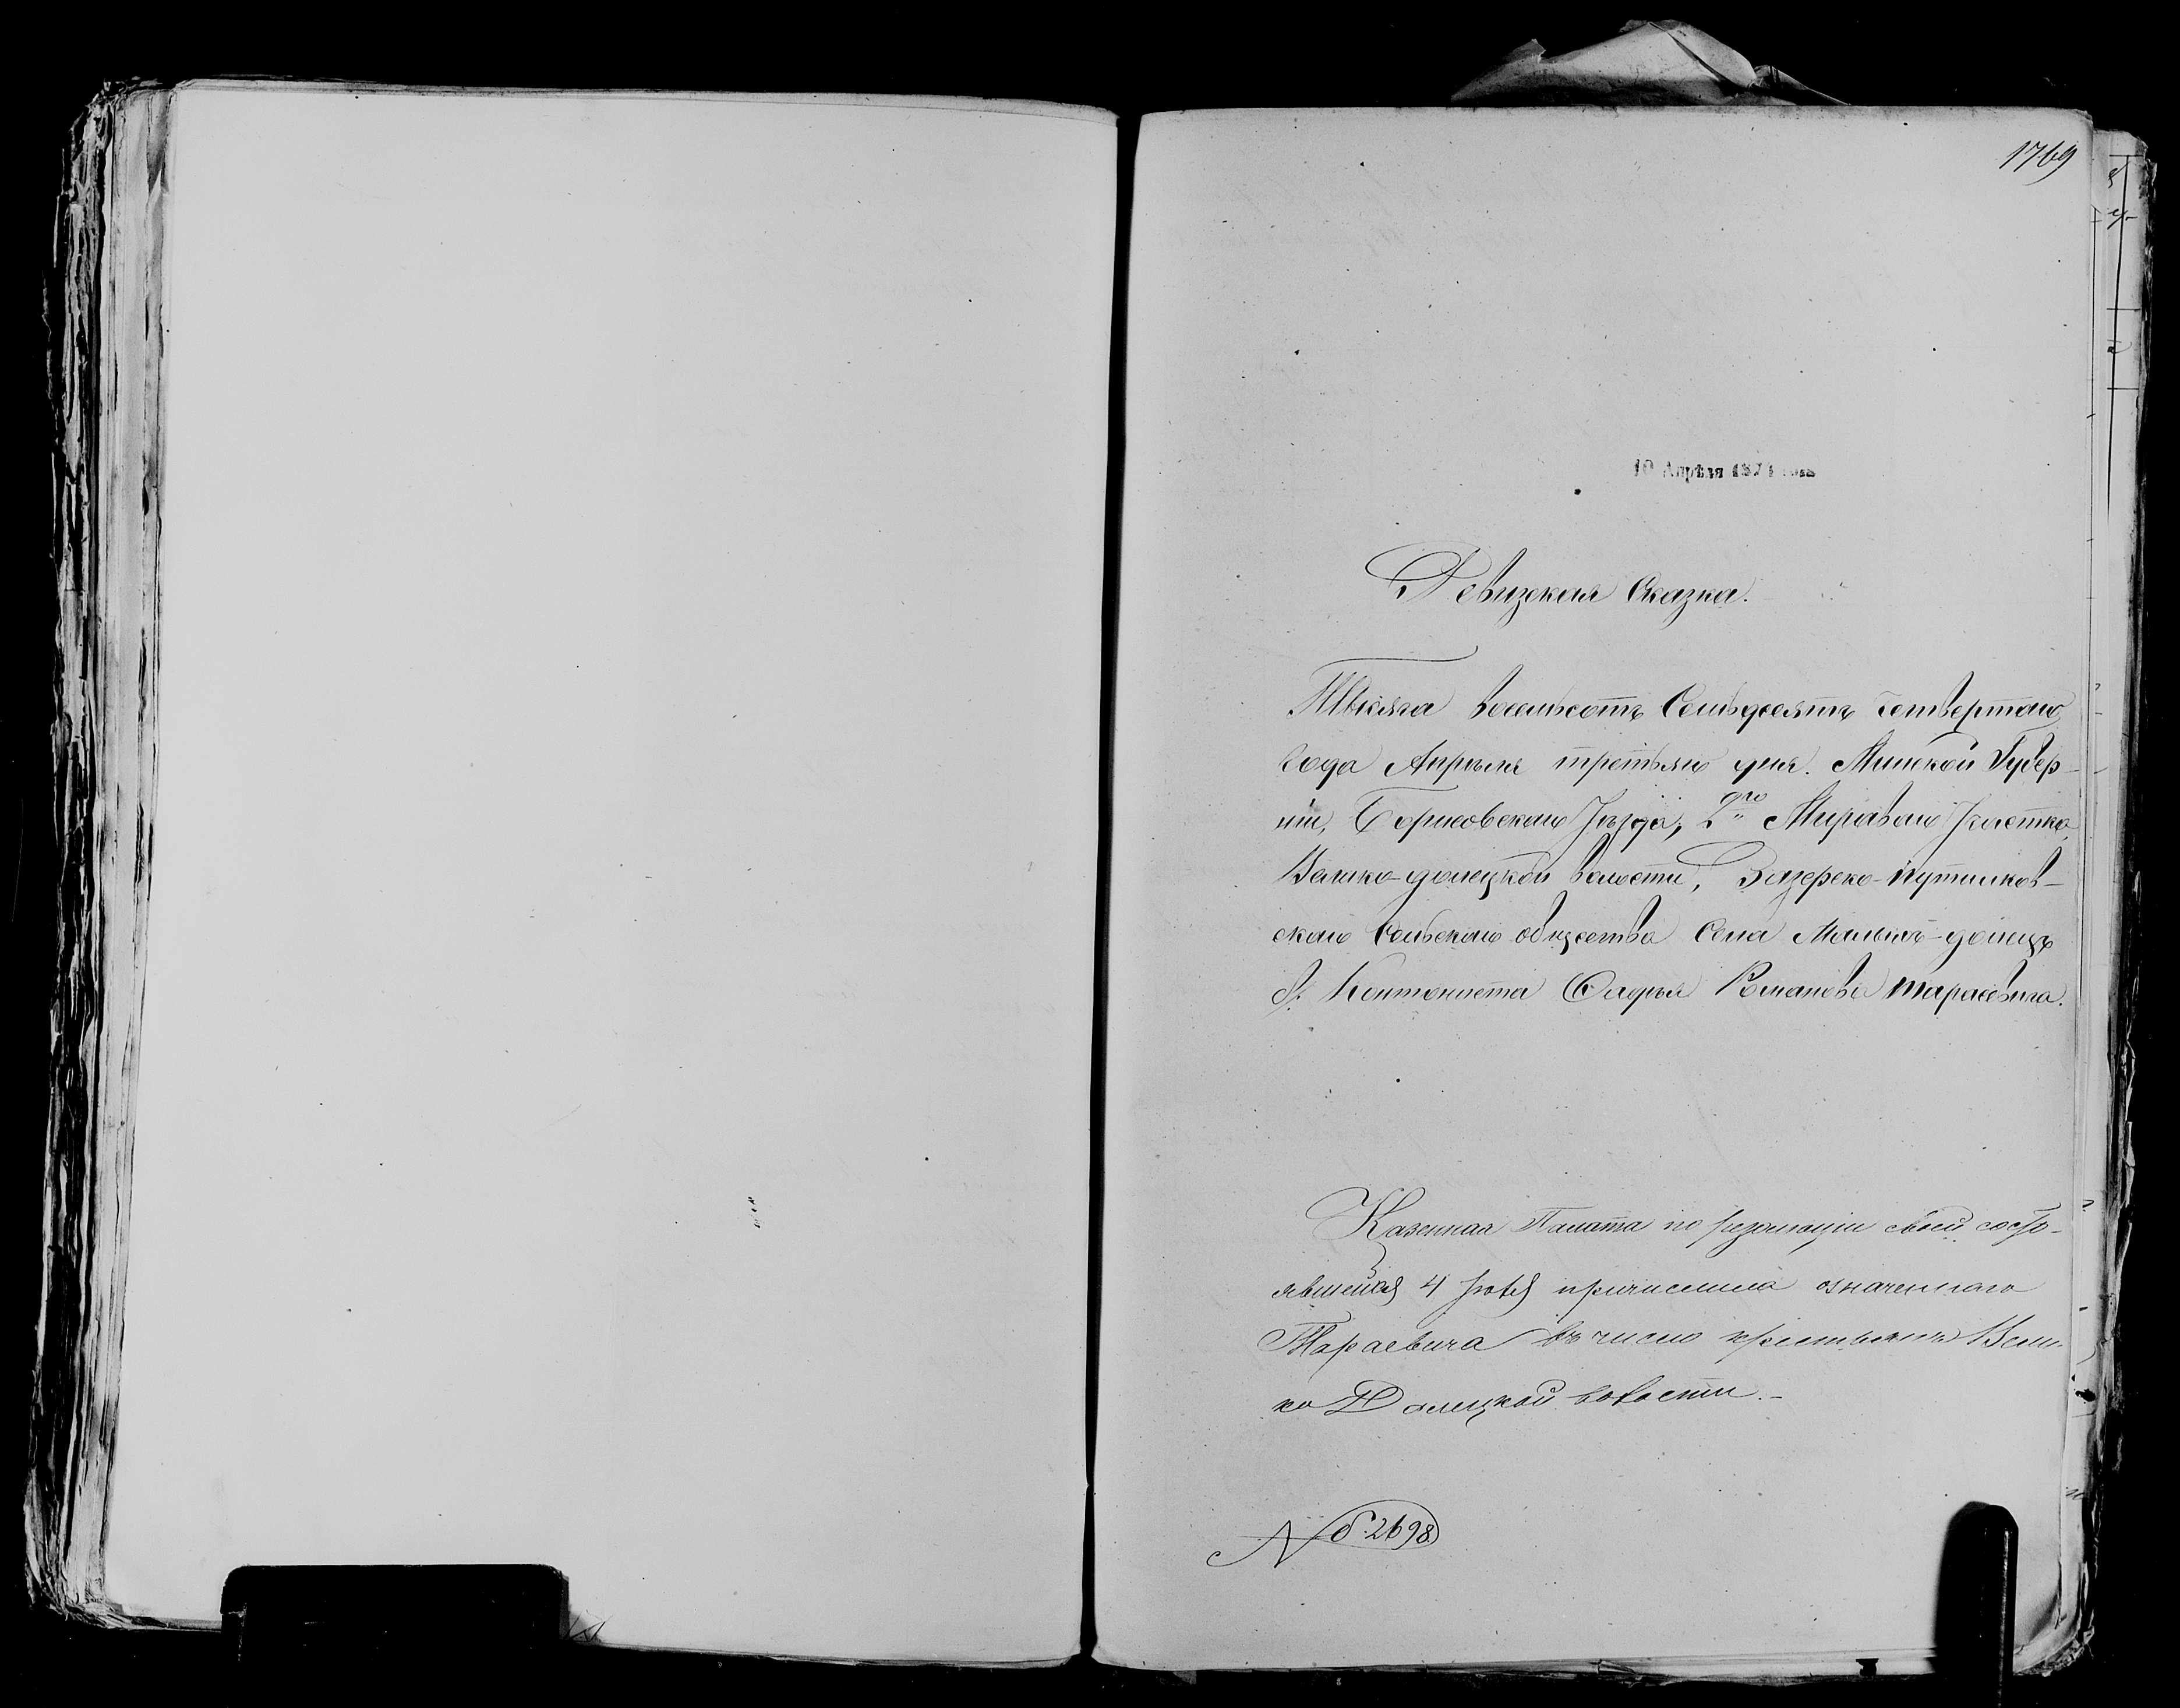 1769
10 Апрѣля 1874 года
Ревизская Сказка.
Тысяча восемьсотъ Семьдесятъ четвертаго
года Апрѣля третьяго дня. Минской Губер-
ніи, Борисовскаго Уѣзда, 2го Мироваго Участка
Велико-долецкой волости, Заозерско-путилков-
скаго Сельскаго общества Села Малыхъ-долецъ
Кантониста Романова тарасевича.
Казенная Палата по резолюціи своей состо-
явшейся 4 причислила означеннаго
Тарасевича въ число крестьянъ Вели-
ко Долецкой волости.-
№ 2698